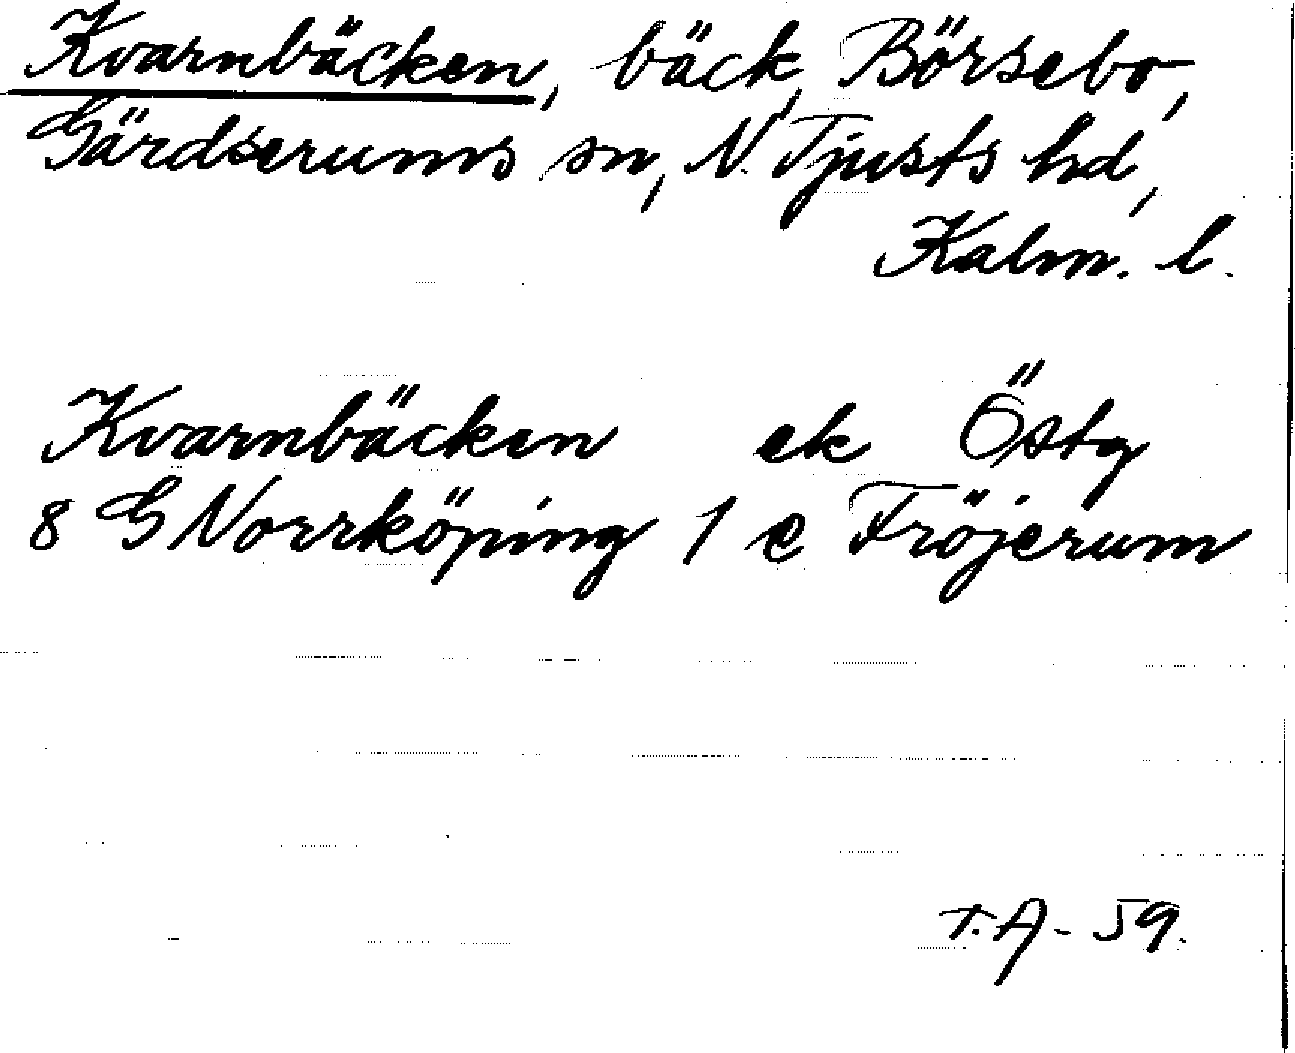 Kvarnbäcken, bäck, Börsebo,
Gärdserums sn, N. Tjusts hd,
Kalm. l.
Kvarnbäcken ek Östg
8 G Norrköping 1 e Fröjerum
T.A - 59.